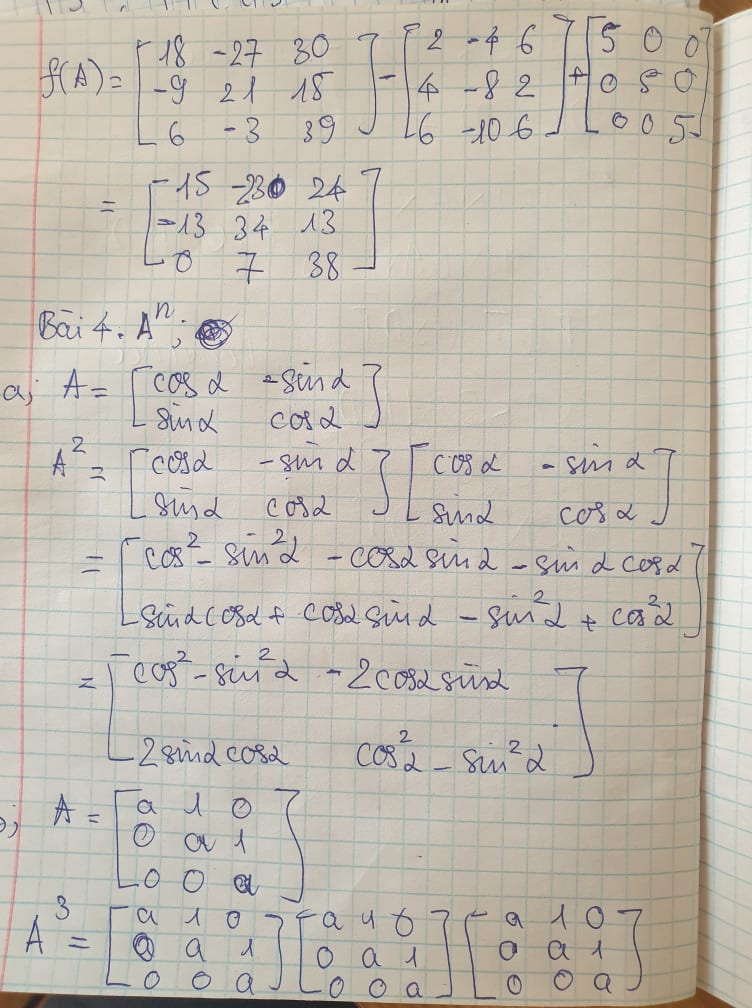 f(A) = [18 -27 30] - [2 -4 6] + [5 0 0]
[-9 21 15] [4 -8 2] [0 5 0]
[6 -3 39] [6 -10 6] [0 0 5]
= [-15 -23 24]
[-13 34 13]
[0 7 38]
Bài 4. Aⁿ;
a; A = [cosα -sinα]
[sinα cosα]
A² = [cosα -sinα] [cosα -sinα]
[sinα cosα] [sinα cosα]
= [cos² - sin²α -cosα sinα - sinα cosα]
[sinα cosα + cosα sinα - sin²α + cos²α]
= [cos² - sin²α -2cosα sinα]
[2sinα cosα cos²α - sin²α]
; A = [a 1 0]
[0 a 1]
[0 0 a]
A³ = [a 1 0] [a 1 0] [a 1 0]
[0 a 1] [0 a 1] [0 a 1]
[0 0 a] [0 0 a] [0 0 a]